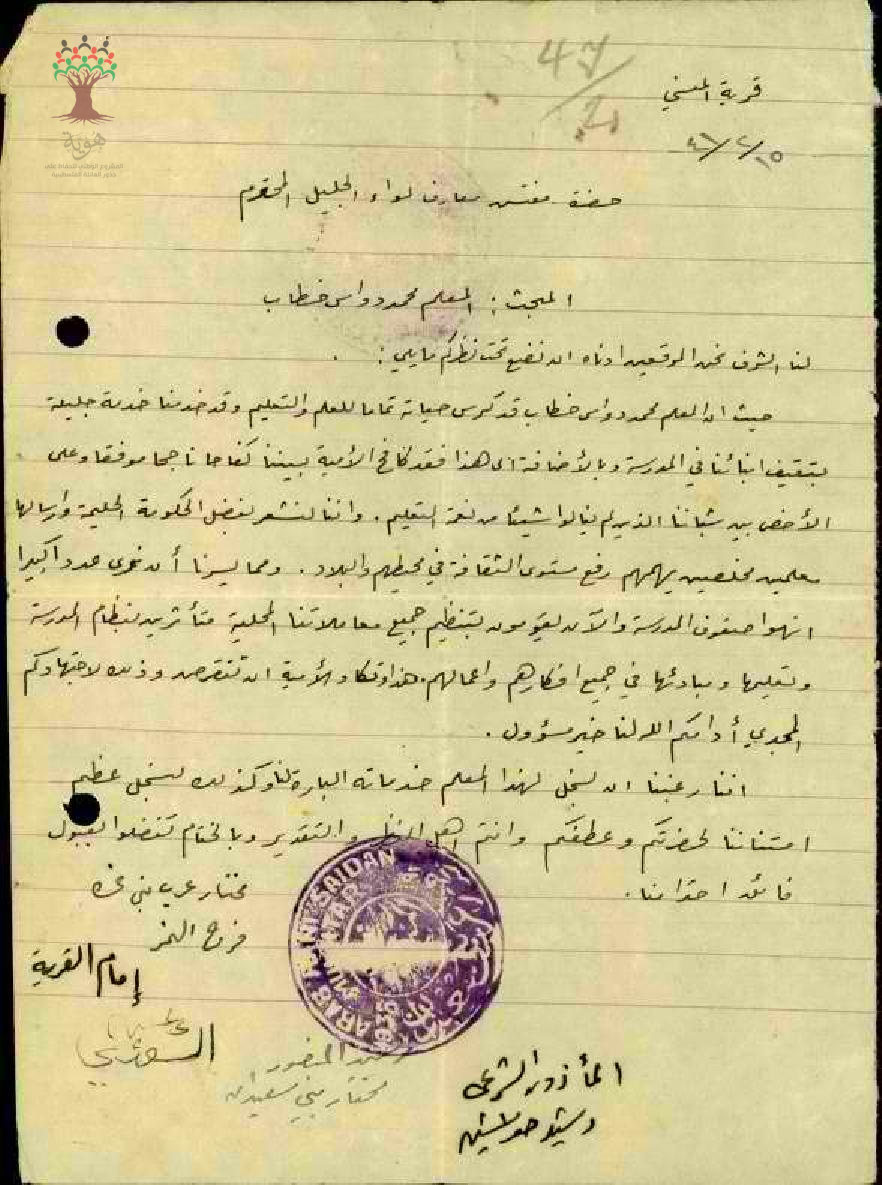 هوية
المشروع الوطني للحفاظ على
جذور العائلة الفلسطينية
47/2
قرية
١٥/٢/٤٦
حضرة مفتش معارف لواء الجليل المحترم
المبحث: المعلم محمود واس خطاب
لنا الشرف نحن الموقعين ادناه ان نضع تحت نظركم ما يلي:
حيث ان المعلم محمود واس خطاب قد كرس حياته تماما للعلم والتعليم وقد خدمنا خدمة جليلة
بتثقيف ابنائنا في المدرسة وبالأضافة الى هذا فقد كافح الأمية ببيننا كفاحا ناجحا موفقا وعلى
الأخص بين شباننا الذين لم ينالوا شيئا من نعمة التعليم. واننا لنشعر بفضل الحكومة الجليلة وارسالها
معلمين مخلصين يهمهم رفع مستوى الثقافة في محيطهم والبلاد. ومما يسرنا أن نرى عددا كبيرا
انهوا صفوف المدرسة والآن يقومون بتنظيم جميع معاملاتنا المحلية متأثرين بنظام المدرسة
وتعليمها ومبادئها في جميع افكارهم واعمالهم. هذا وتكاد الأمية ان تنقرض وذلك لاجتهادكم
المجدي أدامكم الله لنا خير مسؤول.
اننا رغبنا ان نسجل لهذا المعلم خدماته البارة لنا وكذلك نسجل عظيم
امتناننا لحضرتكم وعطفكم وانتم اهل والتقدير وبالختام تفضلوا بقبول
فائق احترامنا.
مختار عرب بني
فرح النمر
إمام القرية
ARAB SAIDAN
MUKHTAR
المنصور
مختار بني سعيدان
المأذون الشرعي